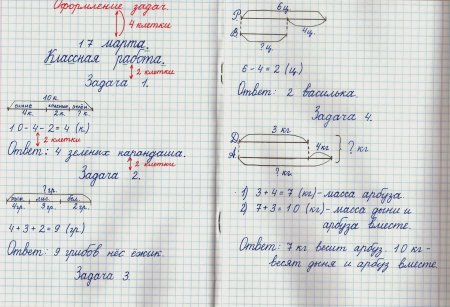 Оформление задач.
4 клетки
17 марта.
Классная работа.
2 клетки
Задача 1.
10 к.
синие красные зелён.
4к. 2к. ? к.
10-4-2=4 (к.)
2 клетки
Ответ: 4 зелёных карандаша.
2 клетки
Задача 2.
? гр.
4гр. 3гр. 2гр.
4+3+2=9 (гр.)
Ответ: 9 грибов нёс ёжик.
Задача 3.
6ц.
Р.
4ц.
В.
? ц.
6-4=2 (ц.)
Ответ: 2 василька.
Задача 4.
3 кг
Д
4кг
? кг
А
? кг.
1) 3+4=7 (кг)- масса арбуза.
2) 7+3=10 (кг)- масса дыни и
арбуза вместе.
Ответ: 7 кг весит арбуз. 10 кг -
весят дыня и арбуз вместе.